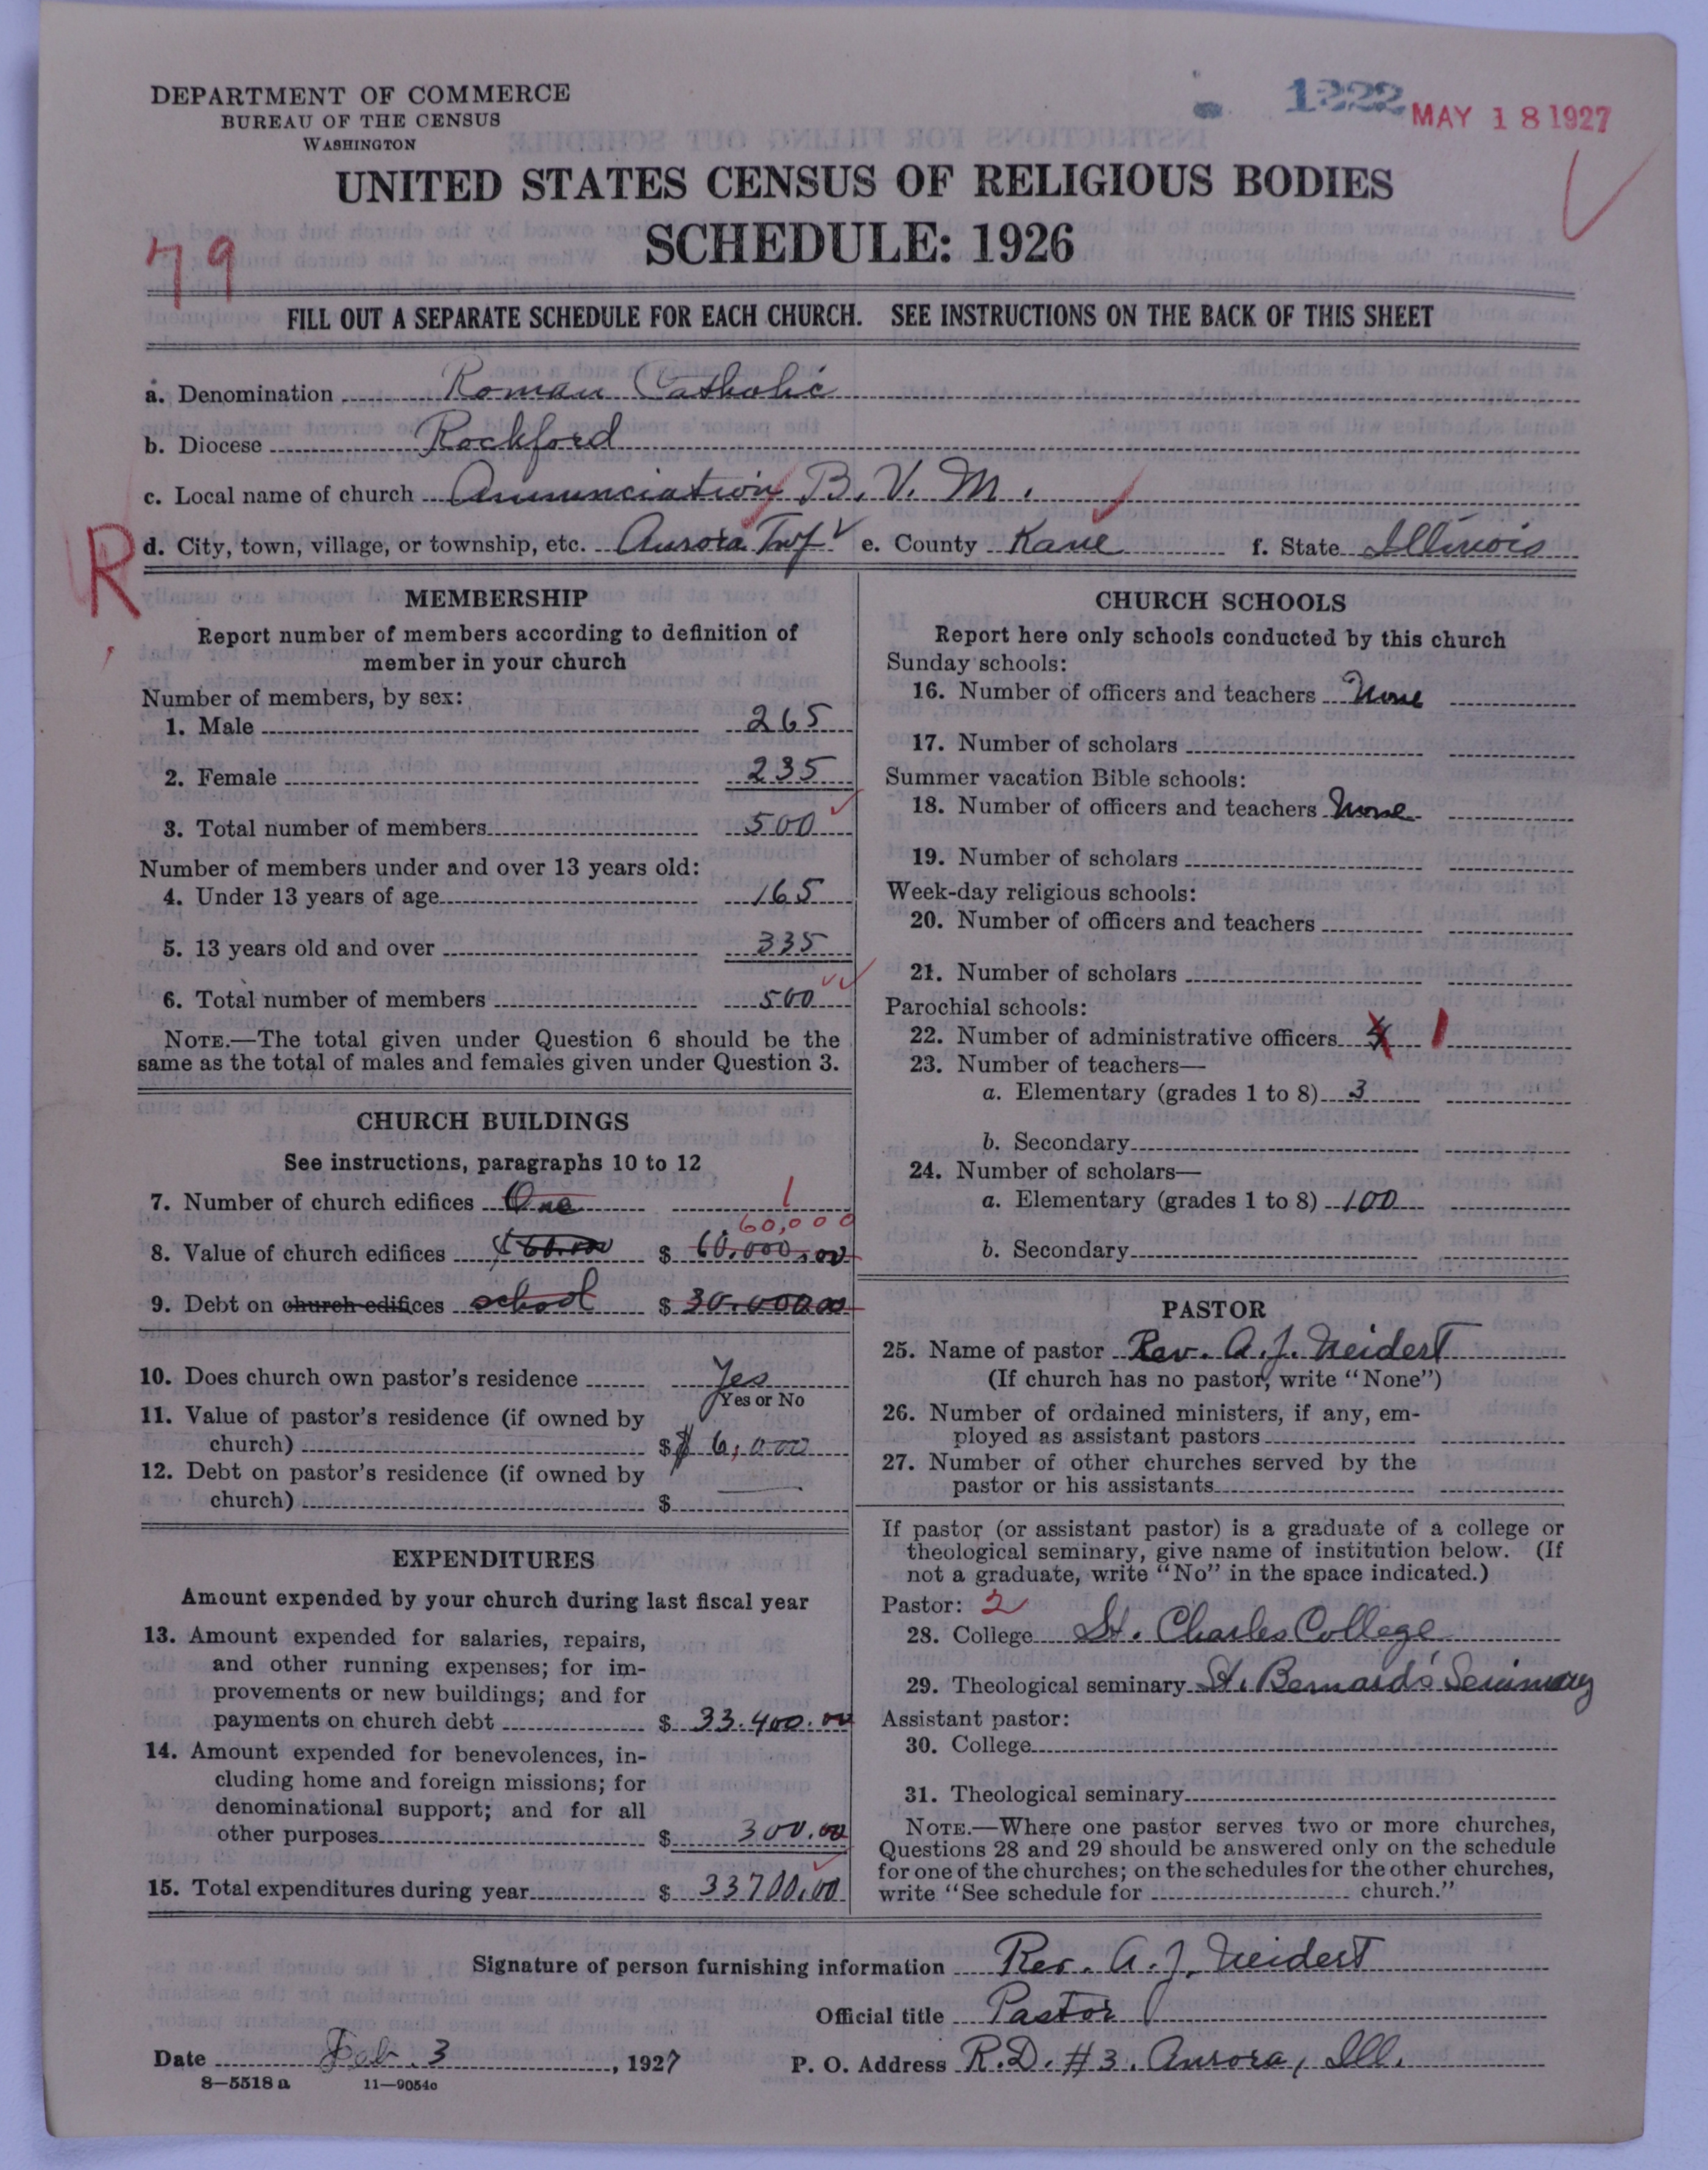 DEPARTMENT OF COMMERCE
BUREAU OF THE CENSUS
WASHINGTON
1222 MAY 18 1927
UNITED STATES CENSUS OF RELIGIOUS BODIES
SCHEDULE: 1926
79
FILL OUT A SEPARATE SCHEDULE FOR EACH CHURCH. SEE INSTRUCTIONS ON THE BACK OF THIS SHEET
a. Denomination Roman Catholic
b. Diocese Rockford
c. Local name of church Annunciation B. V. M.
R d. City, town, village, or township, etc. Aurora Twp e. County Kane f. State Illinois
MEMBERSHIP
Report number of members according to definition of
member in your church
Number of members, by sex:
1. Male 265
2. Female 235
3. Total number of members 500
Number of members under and over 13 years old:
4. Under 13 years of age 165
5. 13 years old and over 335
6. Total number of members 500
NOTE.—The total given under Question 6 should be the
same as the total of males and females given under Question 3.
CHURCH BUILDINGS
See instructions, paragraphs 10 to 12
7. Number of church edifices One 1
60,000
8. Value of church edifices $ 60.000.00
9. Debt on church edifices school $ 30.000.00
10. Does church own pastor's residence Yes
Yes or No
11. Value of pastor's residence (if owned by
church) $ $ 6,000
12. Debt on pastor's residence (if owned by
church) $
EXPENDITURES
Amount expended by your church during last fiscal year
13. Amount expended for salaries, repairs,
and other running expenses; for im-
provements or new buildings; and for
payments on church debt $ 33.400.00
14. Amount expended for benevolences, in-
cluding home and foreign missions; for
denominational support; and for all
other purposes $ 300.00
15. Total expenditures during year $ 33700.00
CHURCH SCHOOLS
Report here only schools conducted by this church
Sunday schools:
16. Number of officers and teachers None
17. Number of scholars
Summer vacation Bible schools:
18. Number of officers and teachers None
19. Number of scholars
Week-day religious schools:
20. Number of officers and teachers
21. Number of scholars
Parochial schools:
22. Number of administrative officers 1
23. Number of teachers—
a. Elementary (grades 1 to 8) 3
b. Secondary
24. Number of scholars—
a. Elementary (grades 1 to 8) 100
b. Secondary
PASTOR
25. Name of pastor Rev. A. J. Neidert
(If church has no pastor, write "None")
26. Number of ordained ministers, if any, em-
ployed as assistant pastors
27. Number of other churches served by the
pastor or his assistants
If pastor (or assistant pastor) is a graduate of a college or
theological seminary, give name of institution below. (If
not a graduate, write "No" in the space indicated.)
Pastor: 2
28. College St. Charles College
29. Theological seminary St. Bernard's Seminary
Assistant pastor:
30. College
31. Theological seminary
NOTE.—Where one pastor serves two or more churches,
Questions 28 and 29 should be answered only on the schedule
for one of the churches; on the schedules for the other churches,
write "See schedule for church."
Signature of person furnishing information Rev. A. J. Neidert
Official title Pastor
Date Feb. 3, 1927 P. O. Address R.D. #3. Aurora, Ill.
8—5518 a 11—9054c